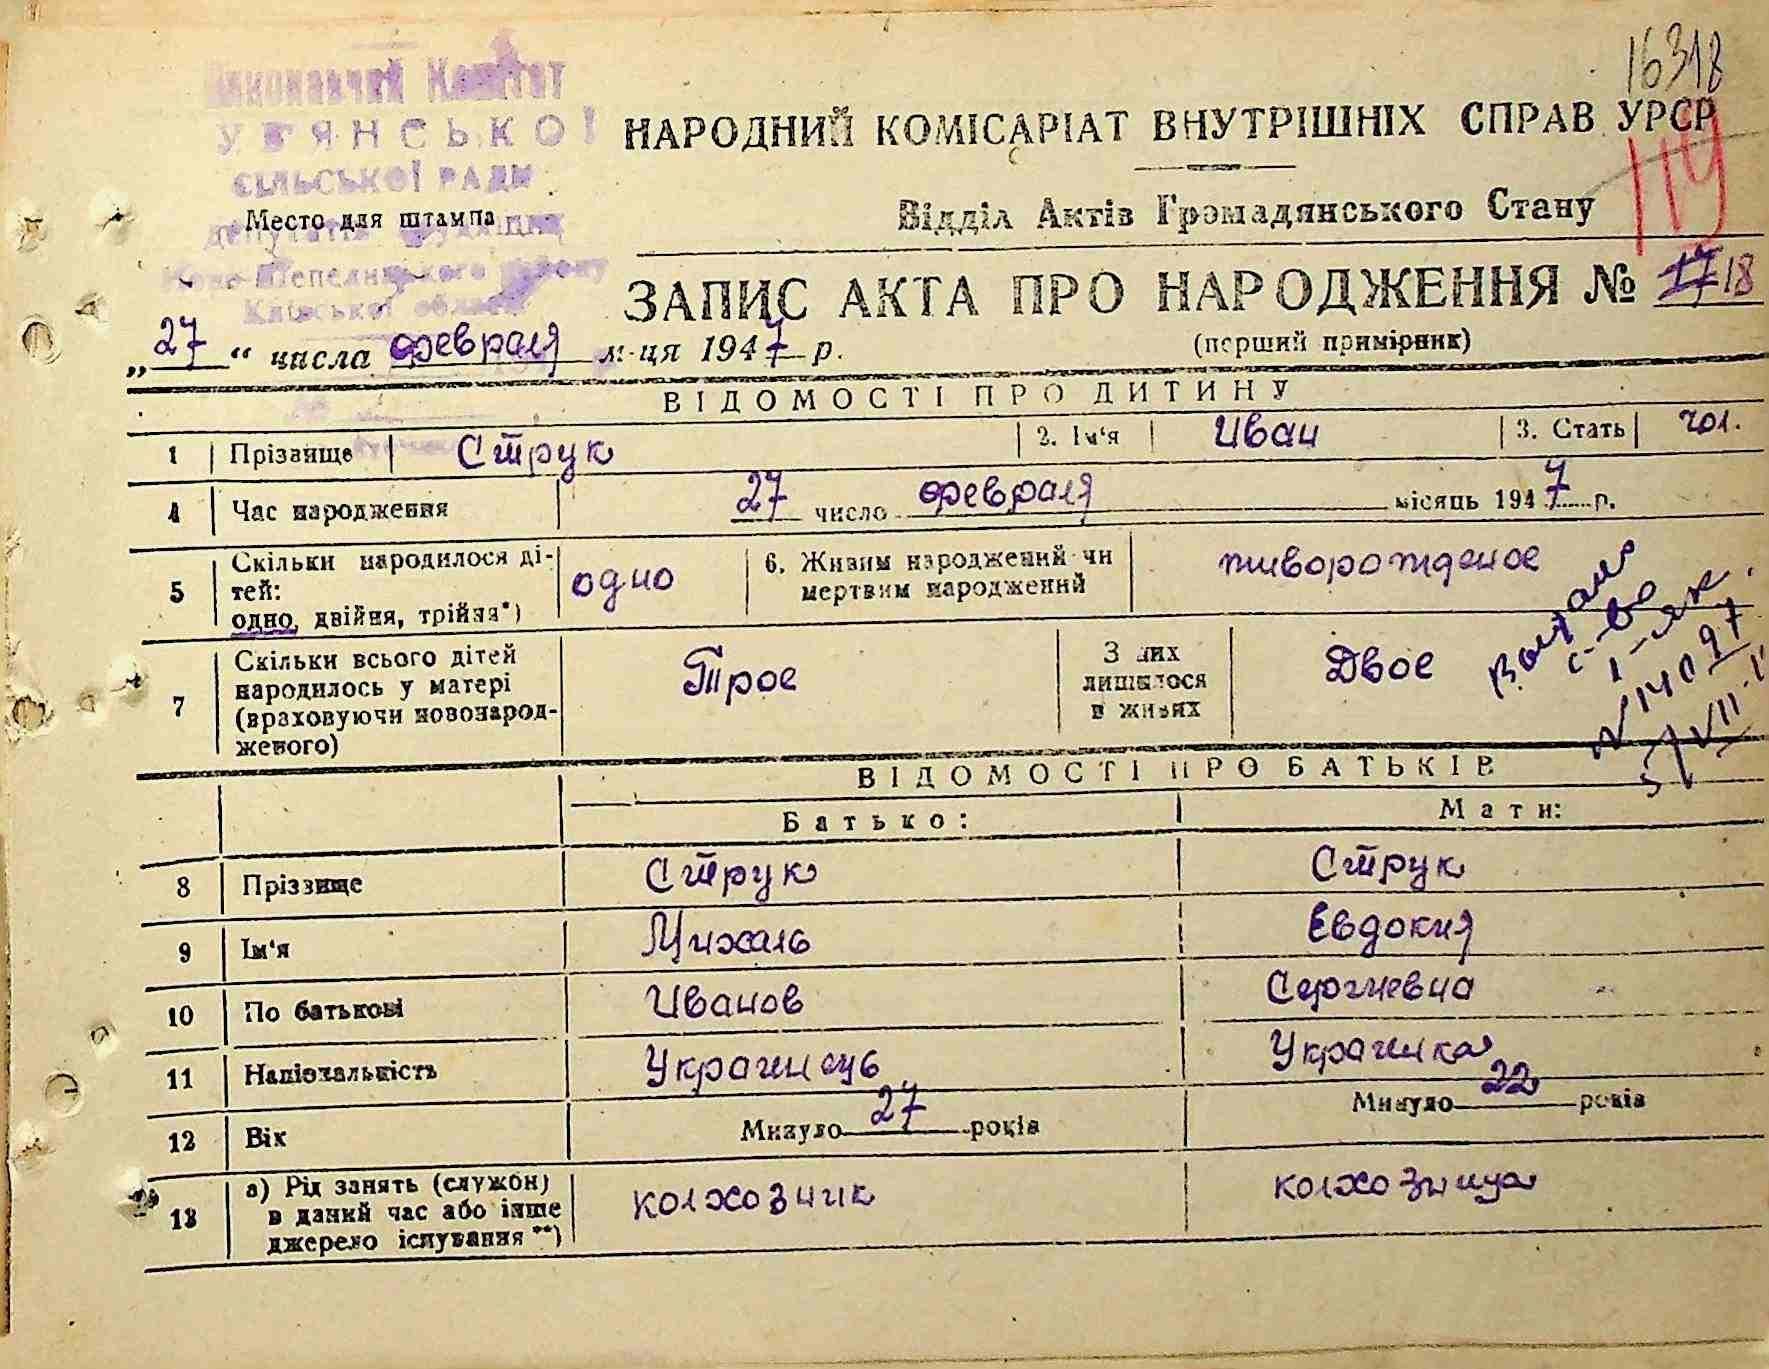 16318
Виконавчий Комітет
УВ'ЯНСЬКОЇ
СІЛЬСЬКОЇ РАДИ
депутатів трудящих
Ново-Шепелицького району
Київської області
Место для штампа
НАРОДНИЙ КОМІСАРІАТ ВНУТРІШНІХ СПРАВ УРСР
119
Відділ Актів Громадянського Стану
ЗАПИС АКТА ПРО НАРОДЖЕННЯ № 17 18
(перший примірник)
„27“ числа февраля м-ця 1947 р.
ВІДОМОСТІ ПРО ДИТИНУ
1 Прізвище Струк 2. Ім'я Иван 3. Стать чол.
4 Час народження 27 число февраля місяць 1947 р.
5 Скільки народилося ді-
тей:
одно, двійня, трійня*)
одно
6. Живим народжений чи
мертвим народжений
живорожденое
7 Скільки всього дітей
народилось у матері
(враховуючи новонарод-
женого)
Трое
З них
лишилося
в живих
Двое
с-во
N 14097
ВІДОМОСТІ ПРО БАТЬКІВ
Батько: Мати:
8 Прізвище Струк Струк
9 Ім'я Михаль Евдокия
10 По батькові Иванов Сергиевна
11 Національність Украинець Украинка
12 Вік Минуло 27 років Минуло 22 років
13 а) Рід занять (службн)
в даний час або інше
джерело існування**)
колхозник колхозница